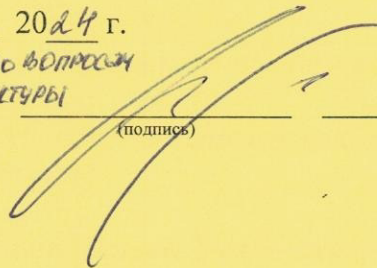 2024 г.
о вопросам
ктуры
(подпись)